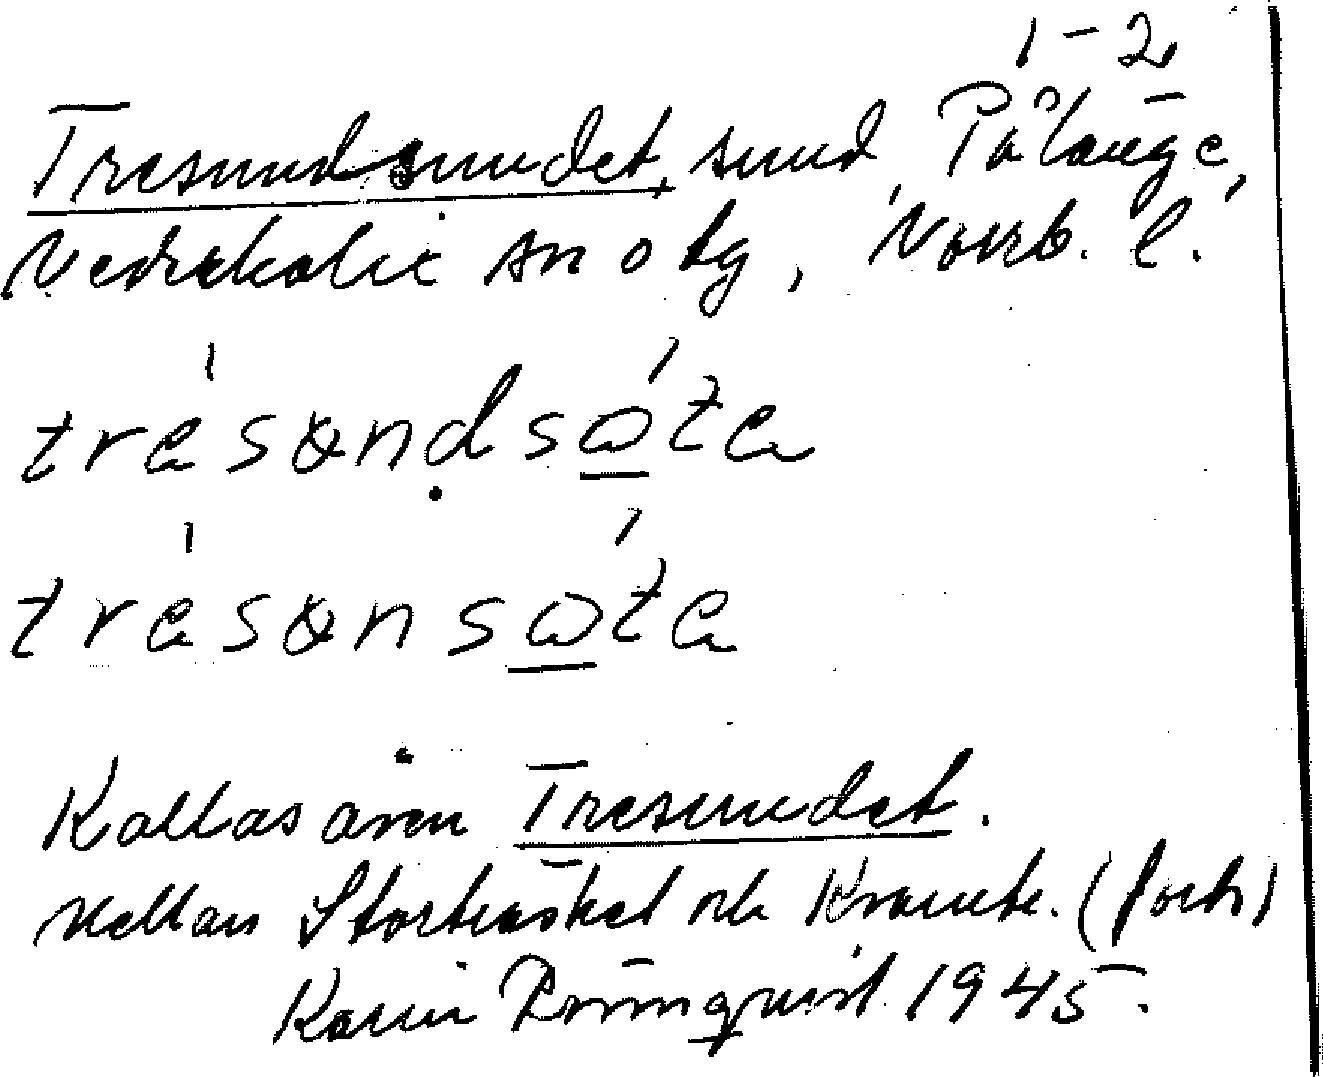 1-2
Tresundsundet, sund, Pålänge,
Nederkalix sn o tg, Norrb. l.
tresɷndsɷ́tɐ
tresɷnsɷ́tɐ
Kallas även Tresundet.
Mellan Stor och (forts)
Karin Rönnquist 1945.